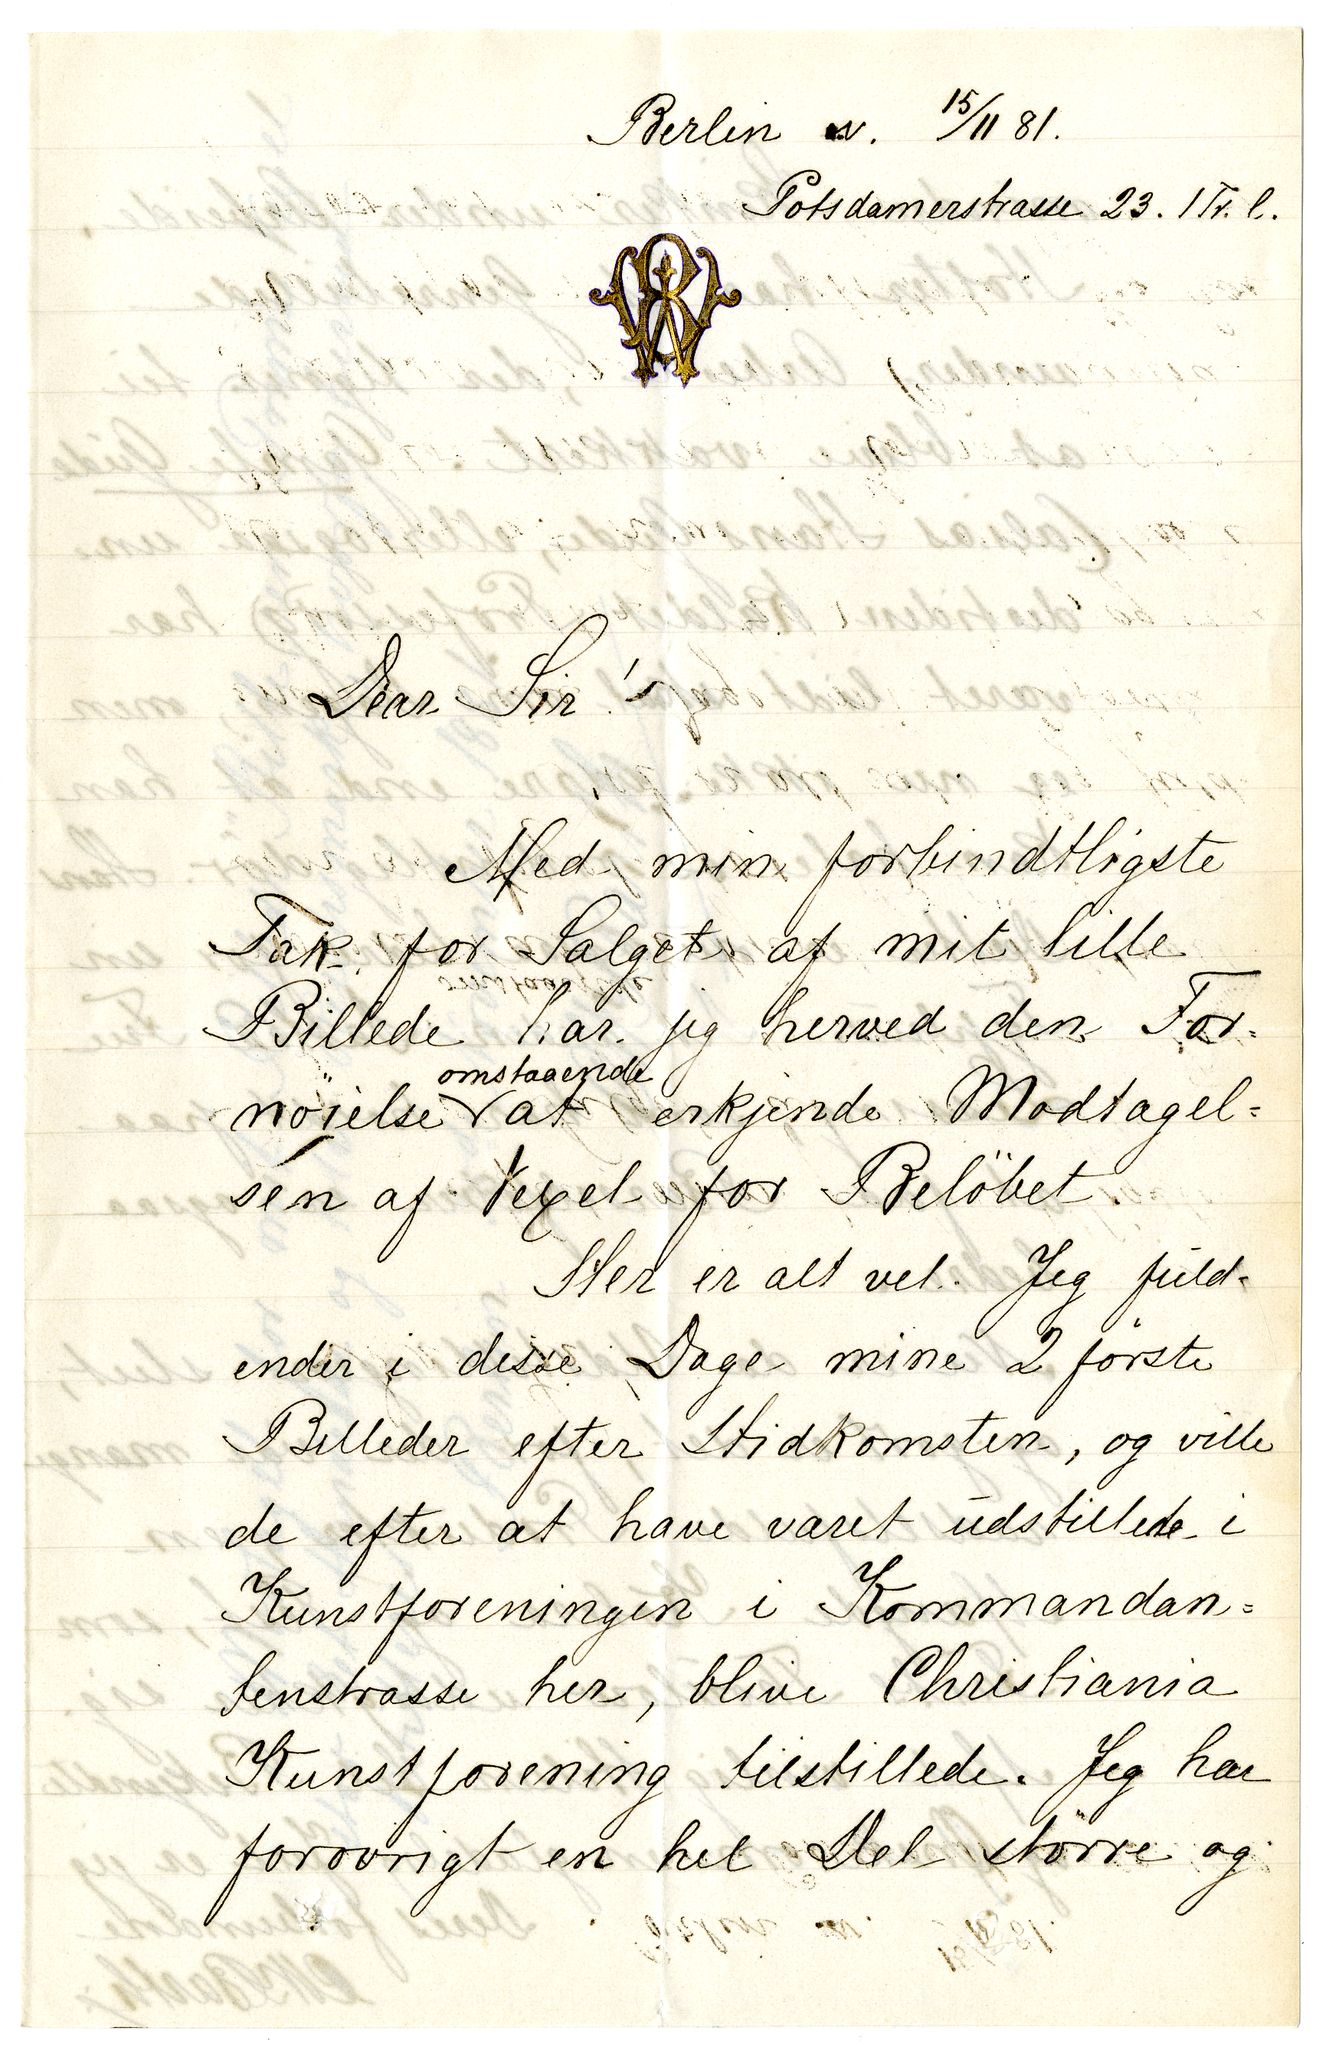 Berlin w. 15/11 81.
Potsdamerstrasse 23. 1 Tr. l.
Dear Sir!
Med min forbindtligste
Tak for Salget af mit lille
Billede har jeg herved den For-
nöielse omstaaende at erkjende Modtagel-
sen af Vexel for Belöbet
Her er alt vel. Jeg fuld-
ender i disse Dage mine 2 förste
Billeder efter Hidkomsten, og ville
de efter at have været udstillede i
Kunstforeningen i Kommandan-
tenstrasse her, blive Christiania
Kunstforening tilstillede. Jeg har
forövrigt en hel Del större og